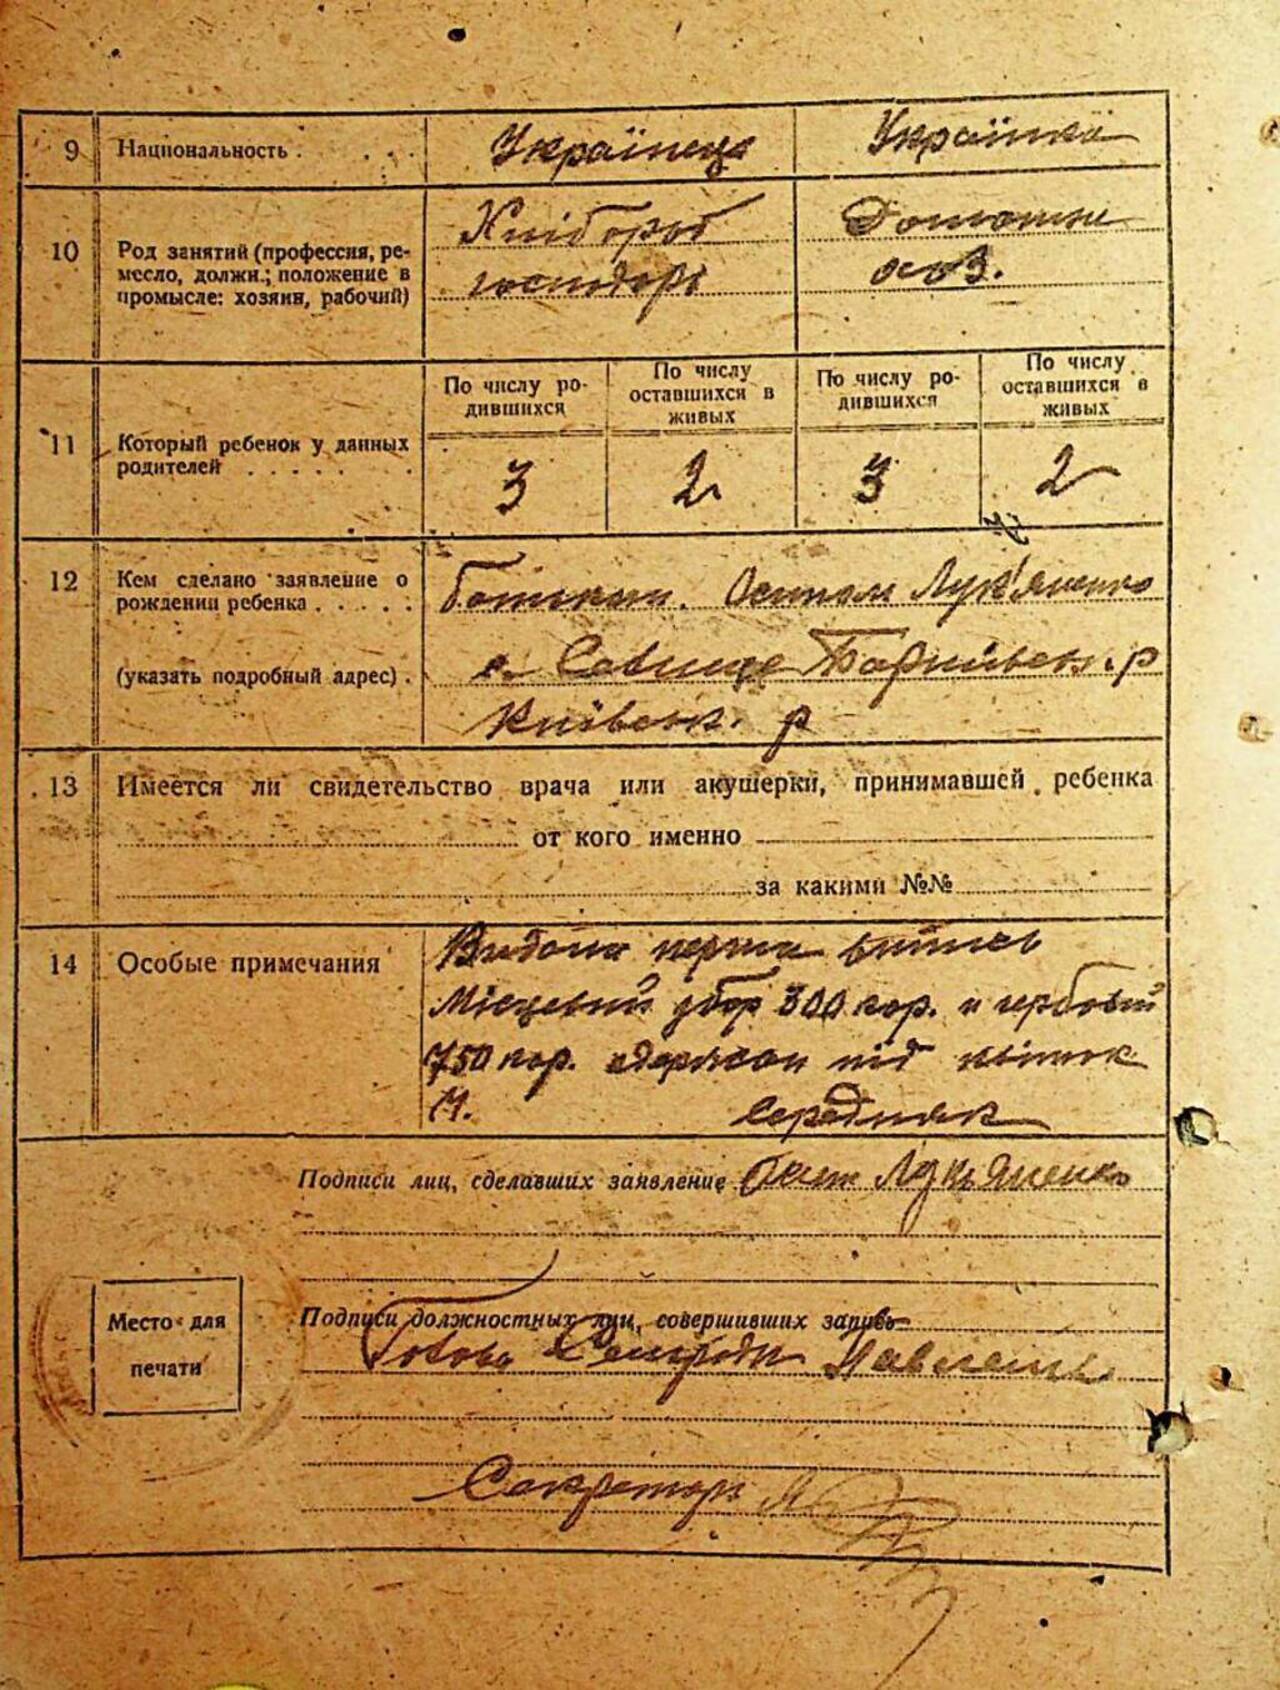 9 Национальность . Українець Українка
10 Род занятий (профессия, ре-
месло, должн.; положение в
промысле: хозяин, рабочий)
Хлібороб
господарь
Домашнє
хоз.
11 Который ребенок у данных
родителей . . . . . .
По числу ро-
дившихся
По числу
оставшихся в
живых
По числу ро-
дившихся
По числу
оставшихся в
живых
3 2 3 2
12 Кем сделано заявление о
рождении ребенка . . . . .
(указать подробный адрес) .
Батьком. Осипом Лук'яненко
с. Баришівськ. р
Київськ. р
13 Имеется ли свидетельство врача или акушерки, принимавшей ребенка
от кого именно
за какими №№
14 Особые примечания
Видана перша випись
Місцевий збор 300 кар. и гербовий
750 кар. одержан під квиток
14. Середняк
Подписи лиц, сделавших заявление Осип Лукьяненко
Место для
печати
Подписи должностных лиц, совершивших запись
Голова Сельради
Секретарь